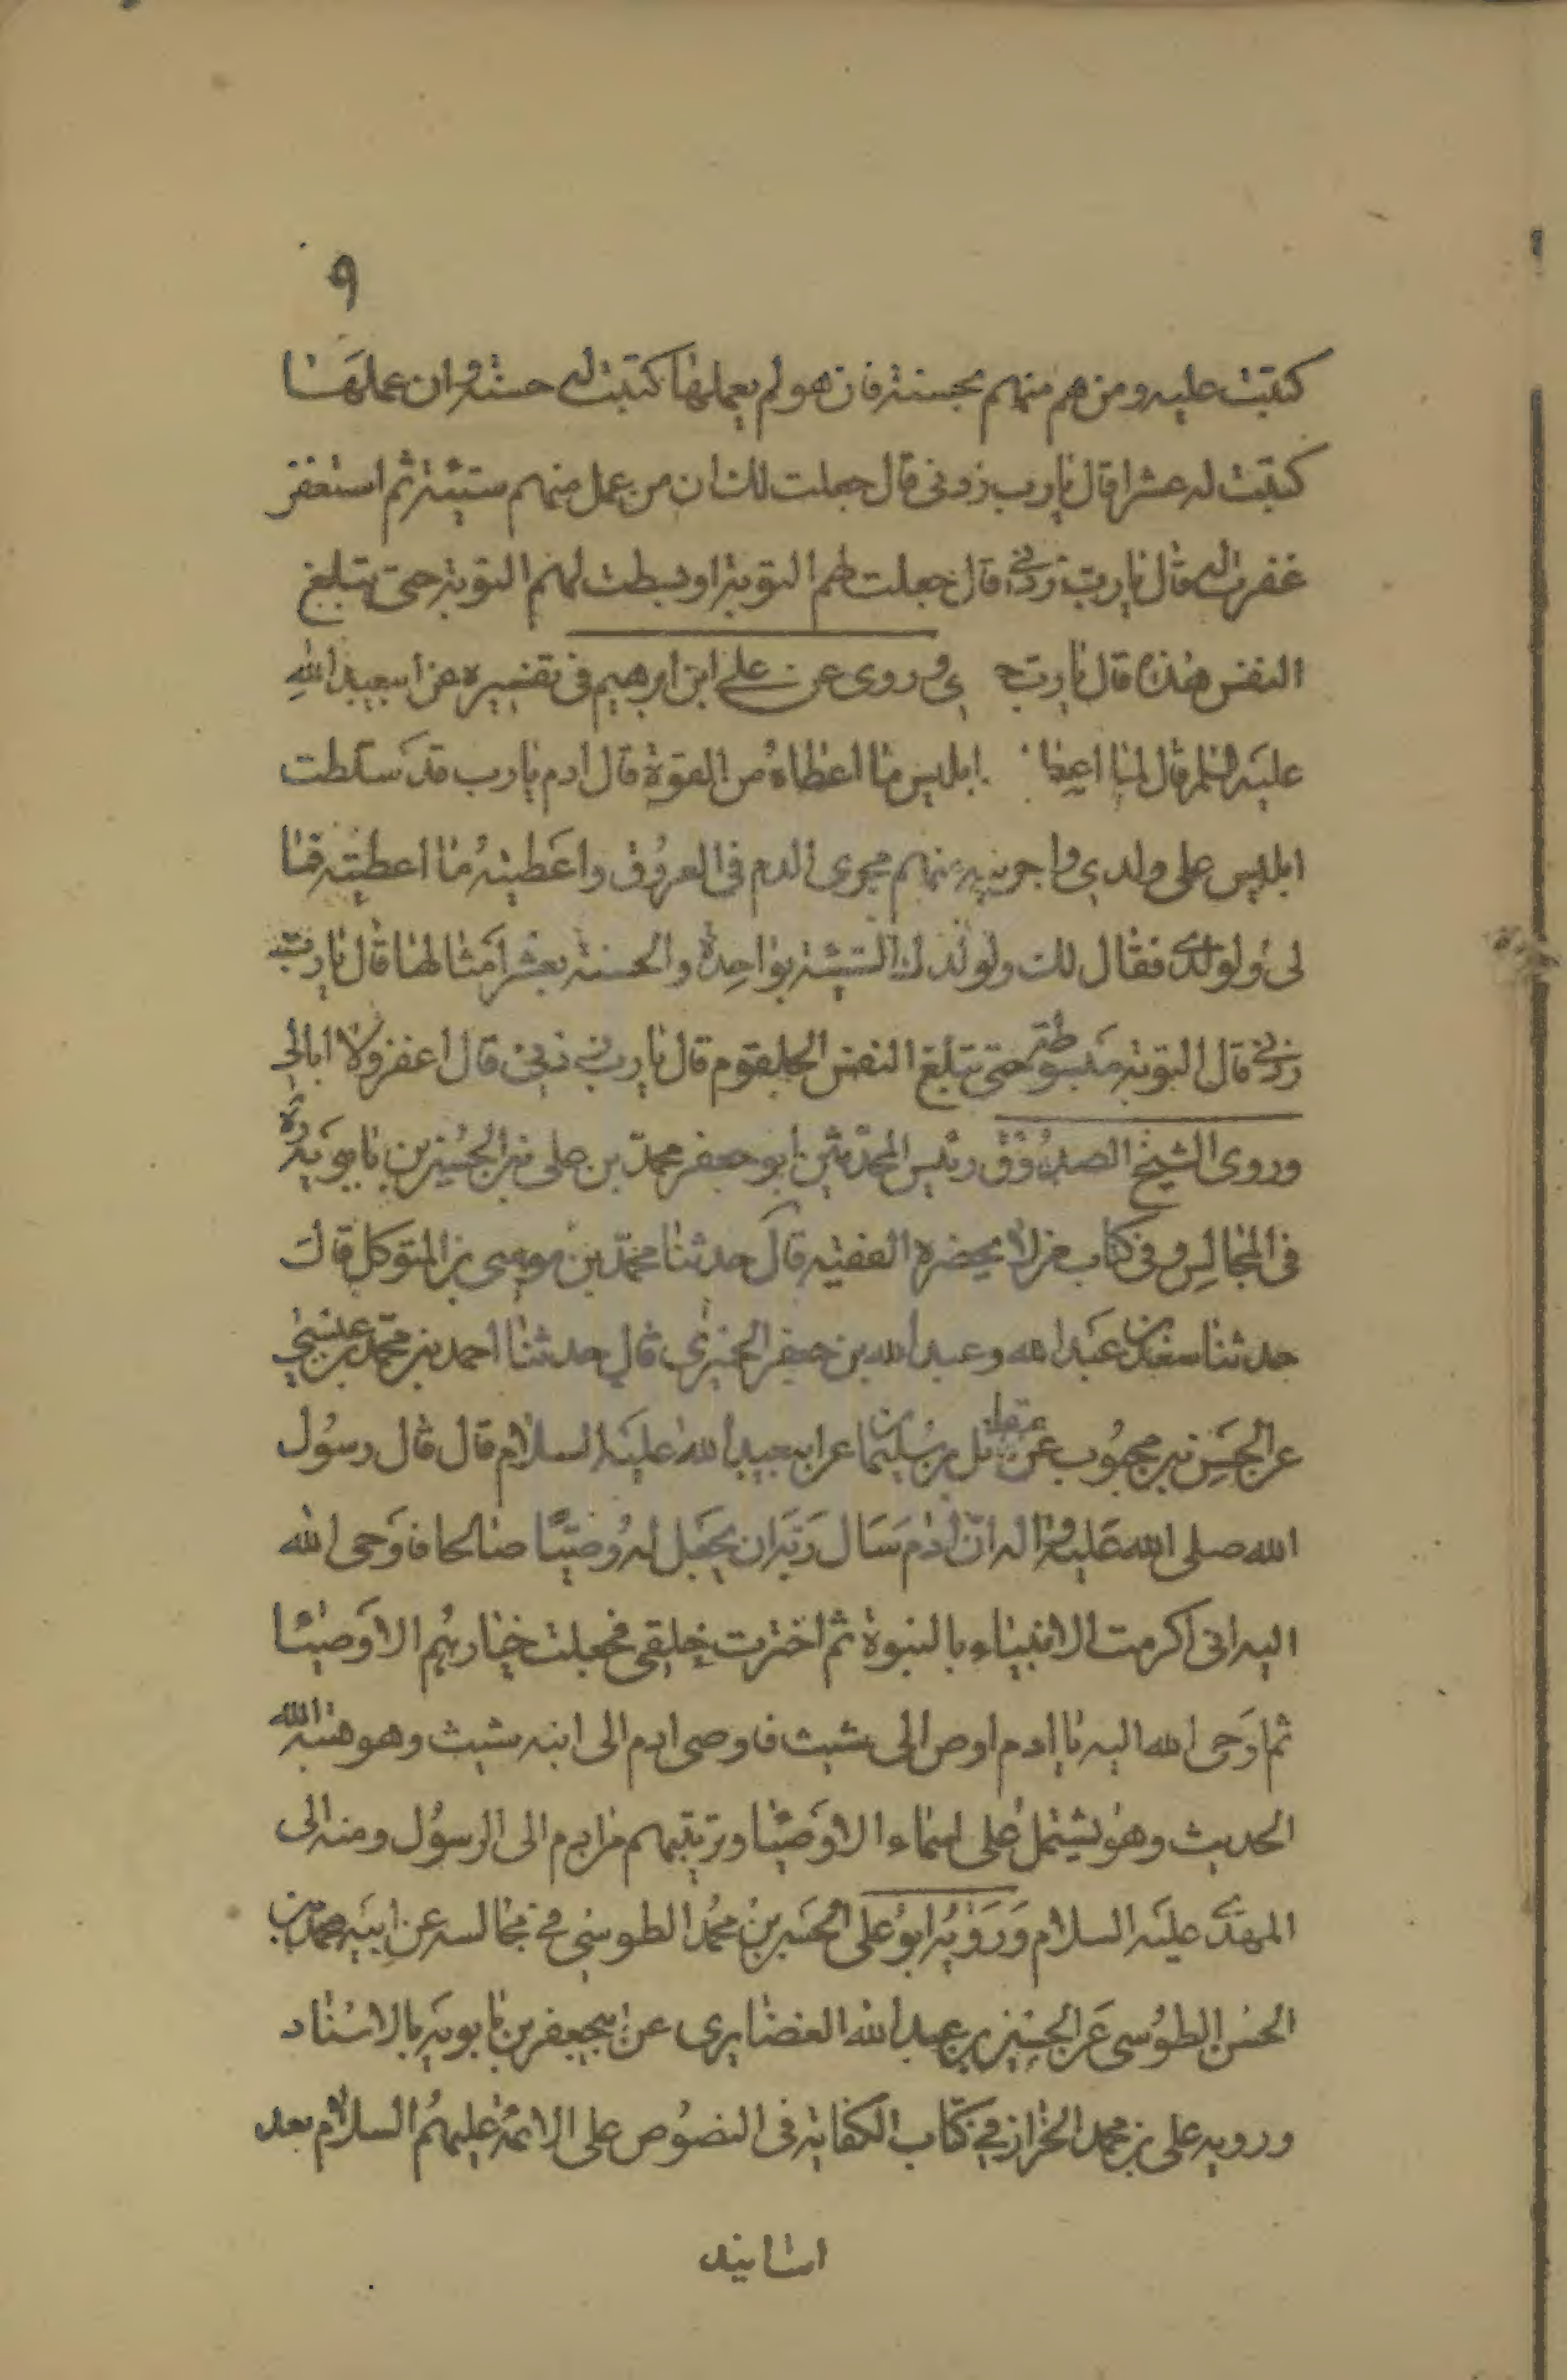 ٩
كتبت عليه ومن هم منهم بحسنة فان هو لم يعملها كتبت له حسنة وان عملها
كتبت له عشرا قال يا رب زدنى قال جعلت لك ان من عمل منهم سيئة ثم استغفر
غفرت له قال يا رب زدنى قال جعلت لهم التوبة او بسطت لهم التوبة حتى تبلغ
النفس هذه قال يا رب وروى عن على ابن ابرهيم فى تفسيره عن ابيعبد الله
عليه السلم قال لما اعطا ابليس ما اعطاه من القوة قال ادم يا رب قد سلطت
ابليس على ولدى واجريته منهم مجرى الدم فى العروق واعطيته ما اعطيته فما
لى ولولدى فقال لك ولولدك السيئة بواحدة والحسنة بعشر امثالها قال يا رب
زدنى قال التوبة مبسوطة حتى تبلغ النفس الحلقوم قال يا رب زدنى قال اغفر ولا ابالى
وروى الشيخ الصدوق رئيس المحدثين ابو جعفر محمد بن على بن الحسين بن بابويه ره
فى المجالس وفى كتاب من لا يحضره الفقيه قال حدثنا محمد بن موسى بن المتوكل قال
حدثنا سعد بن عبد الله وعبد الله بن جعفر الحميرى قال حدثنا احمد بن محمد بن عيسى
عن الحسن بن محبوب عن مقاتل بن سليمان عن ابيعبد الله عليه السلام قال قال رسول
الله صلى الله عليه واله ان ادم سال ربه ان يجعل له وصيا صالحا فاوحى الله
اليه انى اكرمت الانبياء بالنبوة ثم اخترت خلقى فجعلت خيارهم الاوصيا
ثم اوحى الله اليه يا ادم اوص الى شيث فاوصى ادم الى ابنه شيث وهو هبة الله
الحديث وهو يشتمل على اسماء الاوصيا وترتيبهم من ادم الى الرسول ومنه الى
المهدى عليه السلام ورويه ابو على الحسن بن محمد الطوسى فى مجالسه عن ابيه محمد بن
الحسن الطوسى عن الحسين بن عبد الله الغضايرى عن ابيجعفر بن بابويه بالاسناد
ورويه على بن محمد الخزاز فى كتاب الكفاية فى النصوص على الائمة عليهم السلام بعد
اسانيد